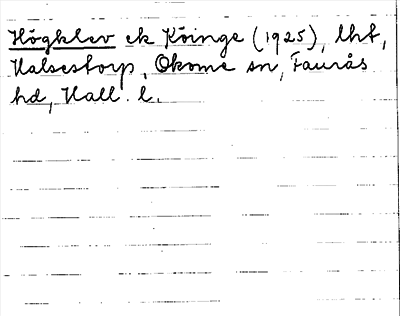 Högklev ek Köinge (1925), lht,
Halsestorp, Okome sn, Faurås
hd, Hall. l.